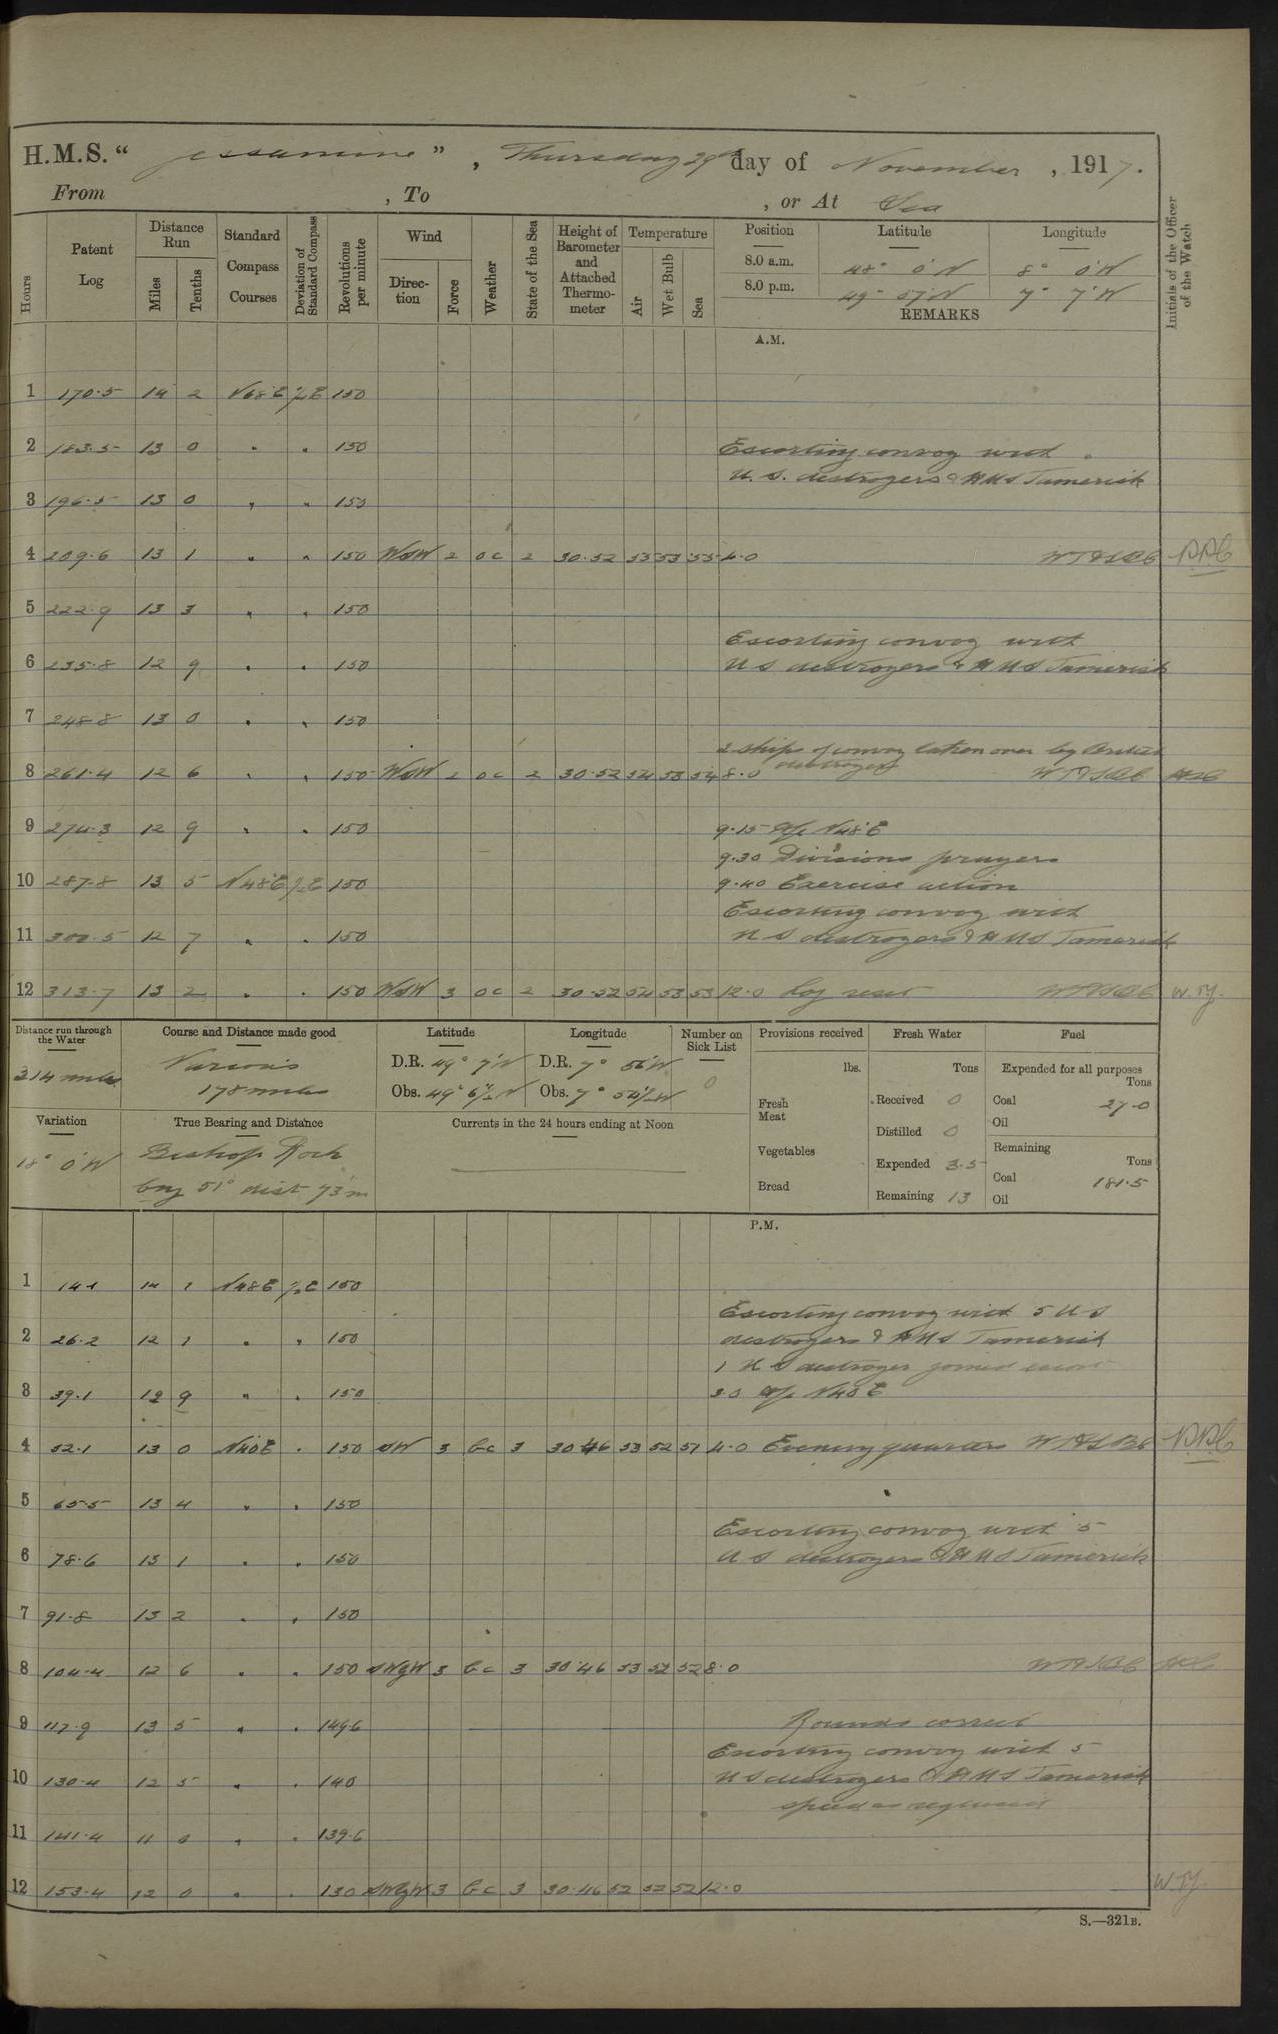 H.M.S. " Jessamine ", Thursday 29th day of November, 1917.
From , To , or At Sea
Hours
Patent Log
Distance Run
Miles
Tenths
Standard Compass Courses
Deviation of Standard Compass
Revolutions per minute
Wind
Direction
Force
Weather
State of the Sea
Height of Barometer and Attached Thermometer
Temperature
Air
Wet Bulb
Sea
Position Latitude Longitude
8.0 a.m. 48° 0'N 8° 0'W
8.0 p.m. 49° 57'N 7° 7'W
REMARKS
Initials of the Officer of the Watch
A.M.
1 170.5 14 2 N68E 150
2 183.5 13 0 " " 150 Escorting convoy with
U.S. destroyers & HMS Tamerisk
3 196.5 13 0 " " 150
4 209.6 13 1 " " 150 WSW 2 oc 2 30.52 53 53 55 4.0
5 222.9 13 3 " " 150
Escorting convoy with
6 235.8 12 9 " " 150 US destroyers & HMS Tamerisk
7 248.8 13 0 " " 150
2 ships of convoy taken over by British
destroyers
8 261.4 12 6 " " 150 WSW 2 oc 2 30.52 54 53 54 8.0
9 274.3 12 9 " " 150 9.15 A/c N48°E
9.30 Divisions prayers
10 287.8 13 5 N48E 150 9.40 Exercise action
Escorting convoy with
11 300.5 12 7 " " 150 US destroyers & HMS Tamerisk
12 313.7 13 2 " " 150 WSW 3 oc 2 30.52 54 53 53 12.0 Log reset W.T.J.
Distance run through the Water
314 miles
Course and Distance made good
Various
178 miles
Latitude
D.R. 49° 7'N
Obs. 49° 6½'N
Longitude
D.R. 7° 56'W
Obs. 7° 54½'W
Number on Sick List
0
Provisions received
lbs.
Fresh Meat
Vegetables
Bread
Fresh Water
Tons
Received 0
Distilled 0
Expended 3.5
Remaining 13
Fuel
Expended for all purposes
Tons
Coal 27.0
Oil
Remaining
Tons
Coal 181.5
Oil
Variation
18° 0'W
True Bearing and Distance
Bishop Rock
brg 51° dist 73'm
Currents in the 24 hours ending at Noon
P.M.
1 14.1 14 1 N48E 150
Escorting convoy with 5 US
2 26.2 12 1 " " 150 destroyers & HMS Tamerisk
1 US destroyer joined escort
3 39.1 12 9 " " 150 3.0 A/c N40E
4 52.1 13 0 N40E " 150 SW 3 bc 3 30.46 53 52 51 4.0 Evening quarters
5 65.5 13 4 " " 150
Escorting convoy with 5
6 78.6 13 1 " " 150 US destroyers & HMS Tamerisk
7 91.8 13 2 " " 150
8 104.4 12 6 " " 150 SWbyW 3 bc 3 30.46 53 52 52 8.0
9 117.9 13 5 " " 149.6 Rounds correct
Escorting convoy with 5
10 130.4 12 5 " " 140 US destroyers & HMS Tamerisk
speed as requisite
11 141.4 11 0 " " 139.6
12 153.4 12 0 " " 130 SWbyW 3 bc 3 30.46 52 52 52 12.0 W.T.J.
S.—321B.